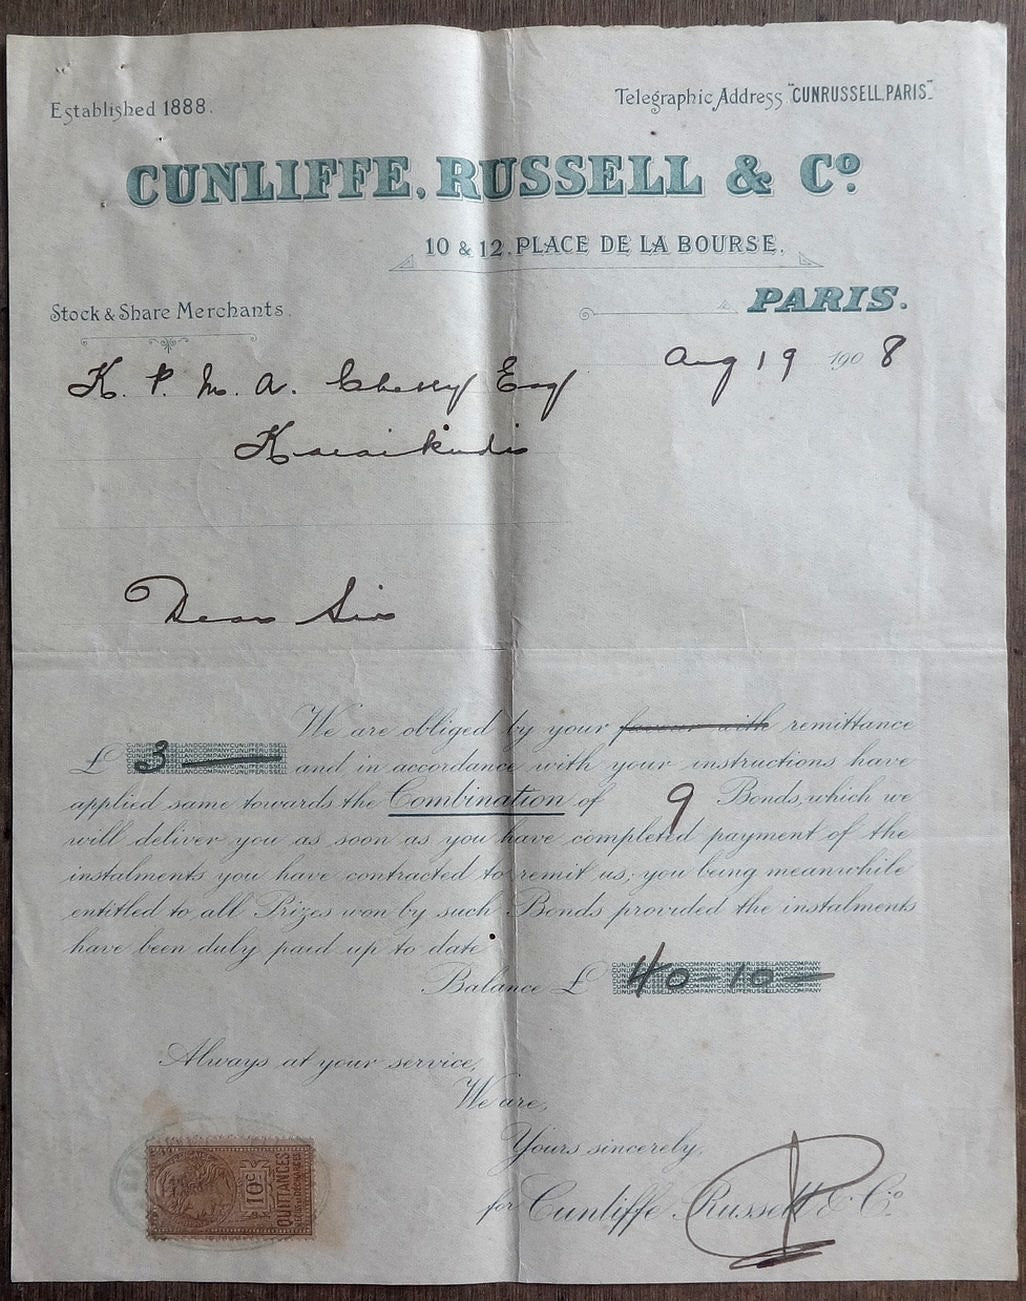 Established 1888.
Telegraphic Address "CUNRUSSELL.PARIS".
CUNLIFFE, RUSSELL & Cº.
10 & 12, PLACE DE LA BOURSE.
PARIS.
Stock & Share Merchants.
Aug 19 1908
K. P. M. A. Chetty Esq
Karaikudi
Dear Sir
We are obliged by your favour with remittance
£ 3 — and in accordance with your instructions have
applied same towards the Combination of 9 Bonds, which we
will deliver you as soon as you have completed payment of the
instalments you have contracted to remit us; you being meanwhile
entitled to all Prizes won by such Bonds provided the instalments
have been duly paid up to date.
Balance £ 40-10-
Always at your service,
We are,
Yours sincerely,
for Cunliffe Russell & Cº.
10c
QUITTANCES